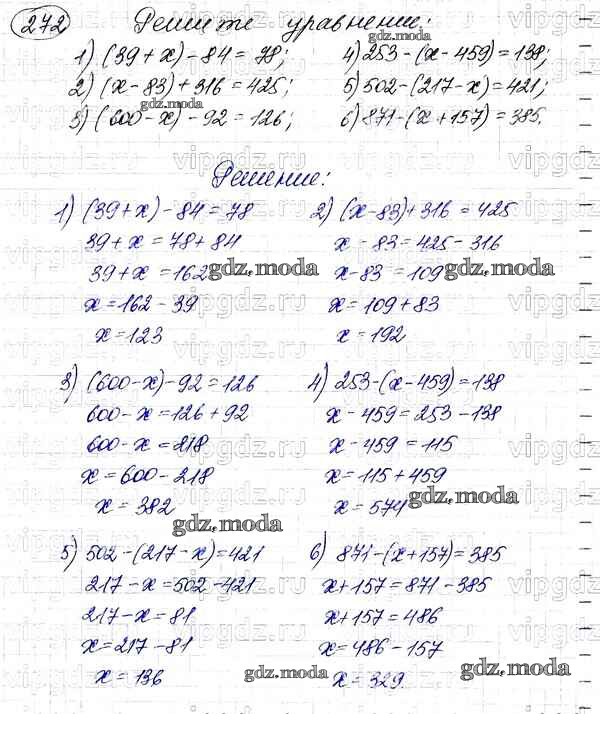 272 Решите уравнение:
1) (39 + x) - 84 = 78; 4) 253 - (x - 459) = 138;
2) (x - 83) + 316 = 425; 5) 502 - (217 - x) = 421;
3) (600 - x) - 92 = 126; 6) 871 - (x + 157) = 385.
Решение:
1) (39 + x) - 84 = 78
39 + x = 78 + 84
39 + x = 162
x = 162 - 39
x = 123
2) (x - 83) + 316 = 425
x - 83 = 425 - 316
x - 83 = 109
x = 109 + 83
x = 192
3) (600 - x) - 92 = 126
600 - x = 126 + 92
600 - x = 218
x = 600 - 218
x = 382
4) 253 - (x - 459) = 138
x - 459 = 253 - 138
x - 459 = 115
x = 115 + 459
x = 574
5) 502 - (217 - x) = 421
217 - x = 502 - 421
217 - x = 81
x = 217 - 81
x = 136
6) 871 - (x + 157) = 385
x + 157 = 871 - 385
x + 157 = 486
x = 486 - 157
x = 329.
gdz.moda
vipgdz.ru